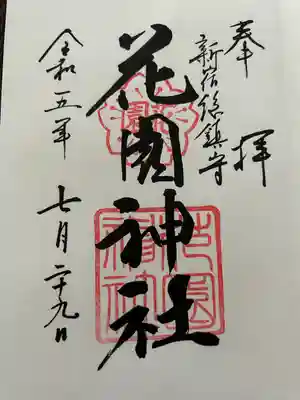 奉拝
新宿総鎮守
花園神社
令和五年七月二十九日
花園神社